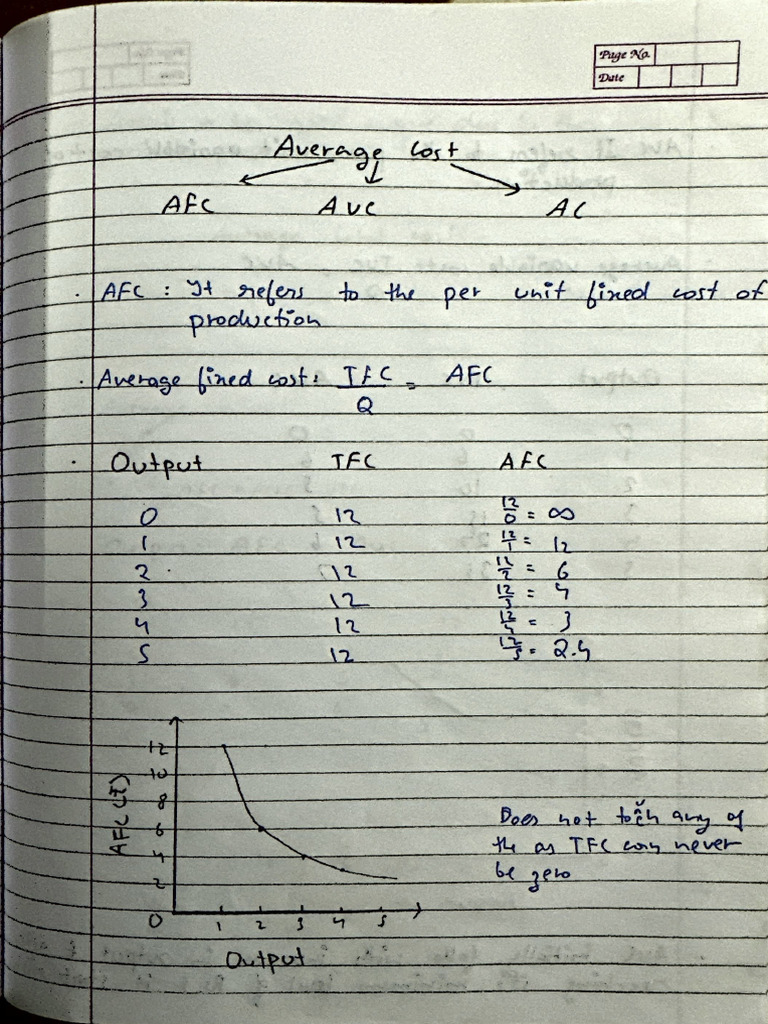 Page No.
Date
Average Cost
AFC AVC AC
. AFC : It refers to the per unit fixed cost of
production
. Average fixed cost: TFC/Q = AFC
. Output TFC AFC
0 12 12/0 = ∞
1 12 12/1 = 12
2 12 12/2 = 6
3 12 12/3 = 4
4 12 12/4 = 3
5 12 12/5 = 2.4
12
10
8
6
4
2
0 1 2 3 4 5
AFC (₹)
Output
Does not touch any of
the as TFC can never
be zero